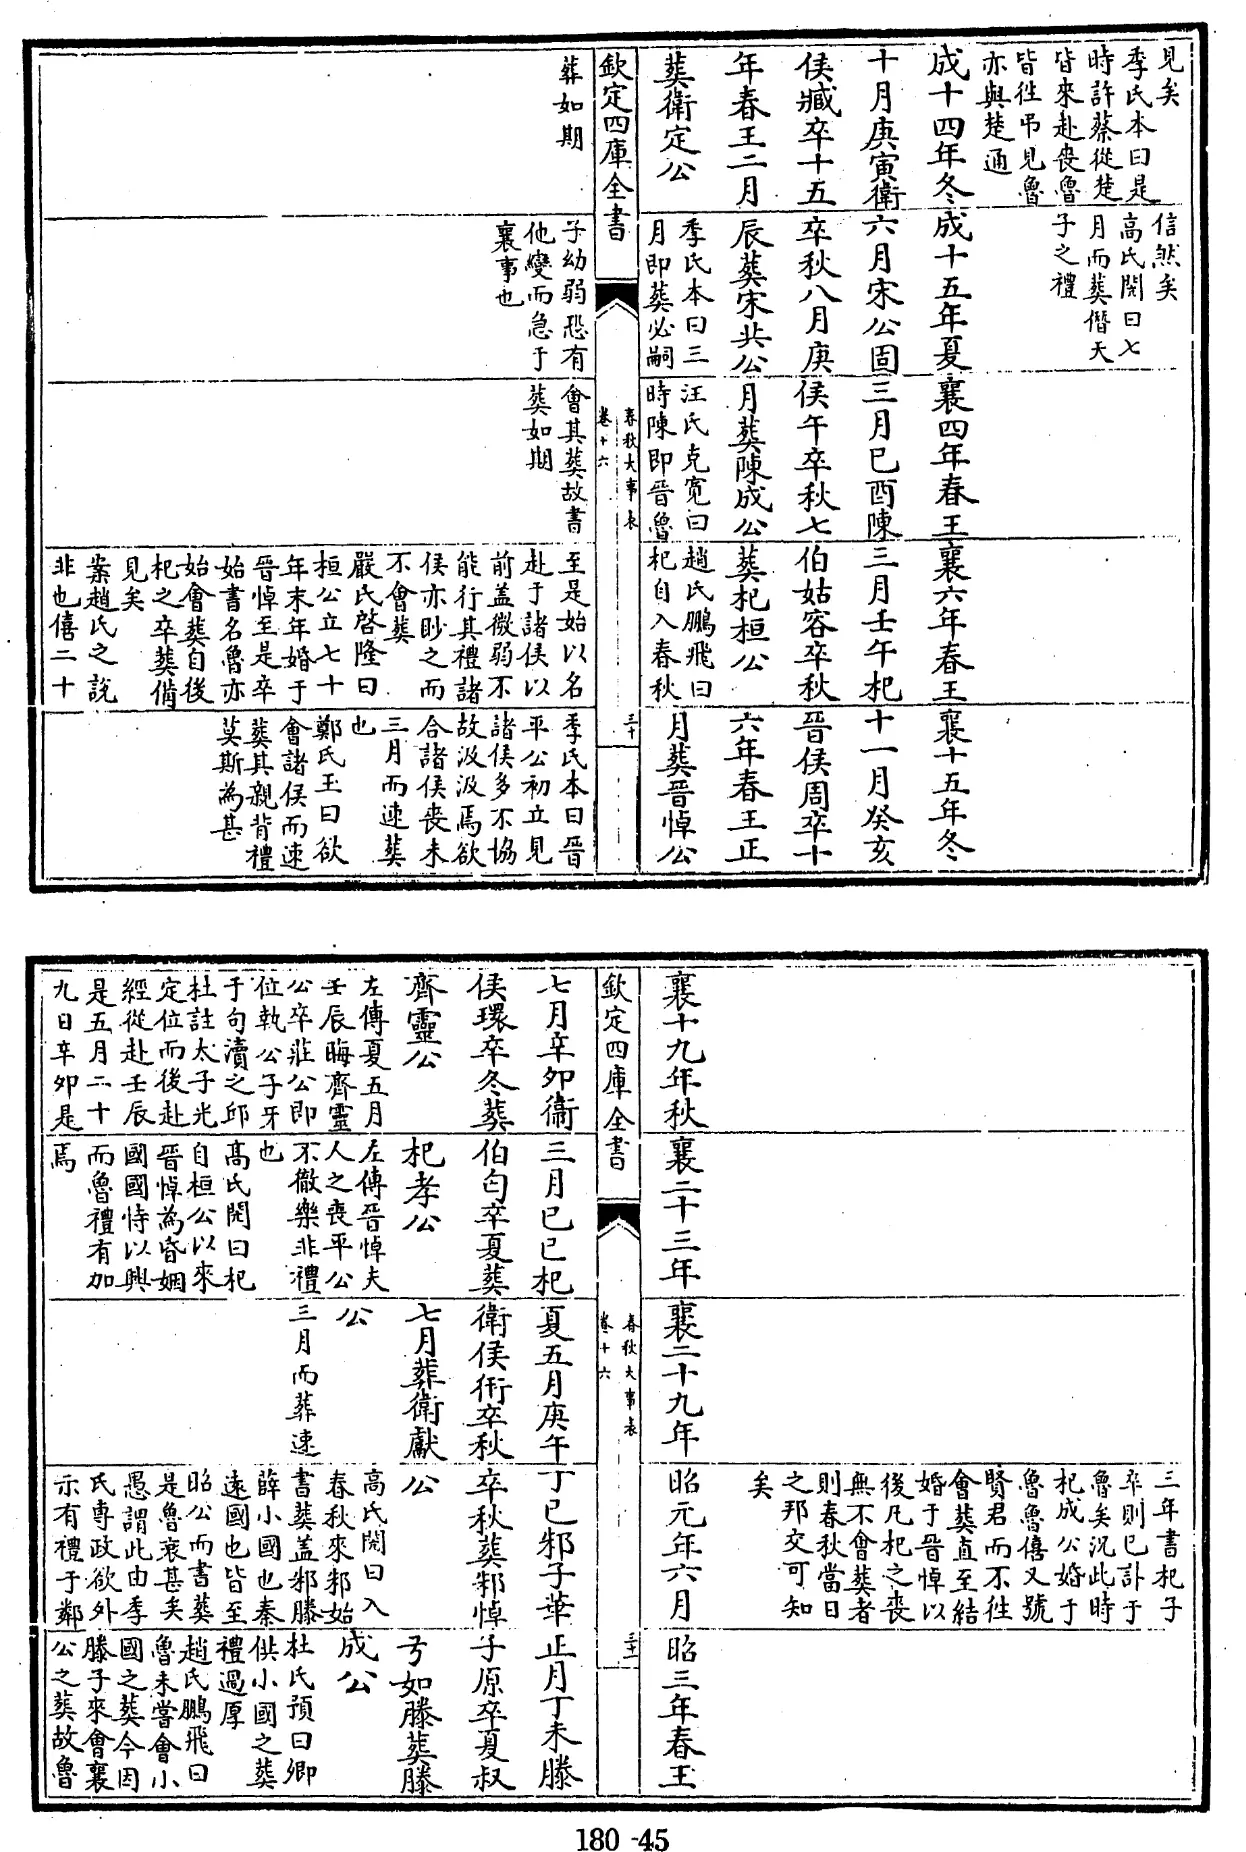 見矣
季氏本曰是
時許蔡從楚
皆來赴喪魯
皆往弔見魯
亦與楚通
成十四年冬
十月庚寅衛
侯臧卒十五
年春王二月
葬衛定公
信然矣
高氏閌曰七
月而葬僭天
子之禮
成十五年夏
六月宋公固
卒秋八月庚
辰葬宋共公
季氏本曰三
月即葬必嗣
襄四年春王
三月己酉陳
侯午卒秋七
月葬陳成公
汪氏克寛曰
時陳即晉魯
襄六年春王
三月壬午杞
伯姑容卒秋
葬杞桓公
趙氏鵬飛曰
杞自入春秋
襄十五年冬
十一月癸亥
晉侯周卒十
六年春王正
月葬晉悼公
欽定四庫全書
春秋大事表
卷十六
三十
葬如期
子幼弱恐有
他變而急于
襄事也
會其葬故書
葬如期
至是始以名
赴于諸侯以
前蓋微弱不
能行其禮諸
侯亦眇之而
不會葬
嚴氏啓隆曰
桓公立七十
年末年婚于
晉悼至是卒
始書名魯亦
始會葬自後
杞之卒葬備
見矣
案趙氏之說
非也僖二十
季氏本曰晉
平公初立見
諸侯多不協
故汲汲焉欲
合諸侯喪未
三月而速葬
也
鄭氏玉曰欲
會諸侯而速
葬其親背禮
莫斯為甚
襄十九年秋
襄二十三年
襄二十九年
三年書杞子
卒則已訃于
魯矣況此時
杞成公婚于
魯魯僖又號
賢君而不往
會葬直至結
婚于晉悼以
後凡杞之喪
無不會葬者
則春秋當日
之邦交可知
矣
昭元年六月
昭三年春王
欽定四庫全書
春秋大事表
卷十六
三十一
七月辛卯衞
侯環卒冬葬
齊靈公
左傳夏五月
壬辰晦齊靈
公卒莊公即
位執公子牙
于句瀆之邱
杜註太子光
定位而後赴
經從赴壬辰
是五月二十
九日辛卯是
三月己巳杞
伯匄卒夏葬
杞孝公
左傳晉悼夫
人之喪平公
不徹樂非禮
也
髙氏閌曰杞
自桓公以來
晉悼為昏姻
國國恃以興
而魯禮有加
焉
夏五月庚午
衛侯衎卒秋
七月葬衛獻
公
三月而葬速
丁巳邾子華
卒秋葬邾悼
公
高氏閌曰入
春秋來邾始
書葬蓋邾滕
薛小國也秦
遠國也皆至
昭公而書葬
是魯衰甚矣
愚謂此由季
氏專政欲外
示有禮于鄰
正月丁未滕
子原卒夏叔
弓如滕葬滕
成公
杜氏預曰卿
供小國之葬
禮過厚
趙氏鵬飛曰
魯未嘗會小
國之葬今因
滕子來會襄
公之葬故魯
180-45